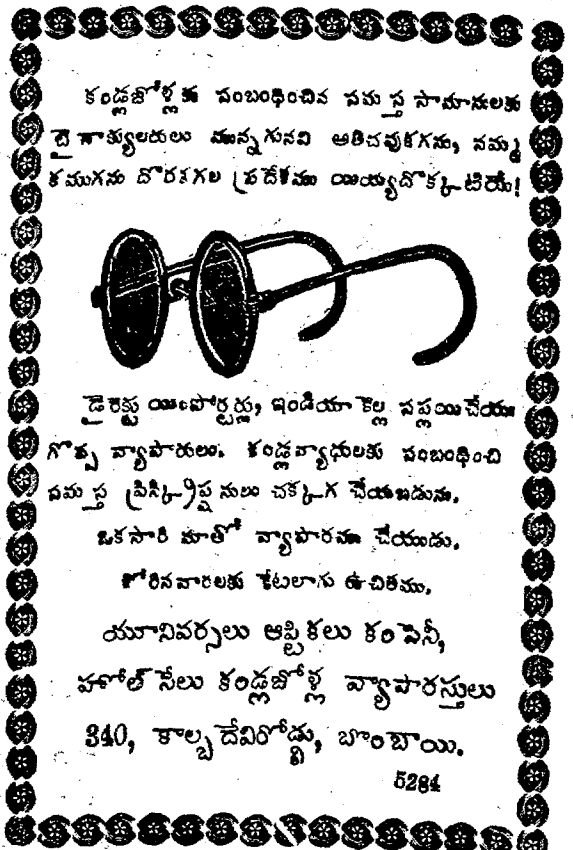 కండ్లజోళ్లకు సంబంధించిన సమస్త సామానులకు
బైనాక్యులరులు మున్నగునవి అతిచవుకగను, నమ్మ
కముగను దొరకగల ప్రదేశము యియ్యదొక్కటియే!
డైరెక్టు యింపోర్టర్లు, ఇండియా కెల్ల సప్లయిచేయు
గొప్ప వ్యాపారులు. కండ్లవ్యాధులకు సంబంధించి
సమస్త ప్రిస్క్రిప్షనులు చక్కగ చేయబడును.
ఒకసారి మాతో వ్యాపారము చేయుడు.
కోరినవారలకు కేటలాగు ఉచితము.
యూనివర్సలు ఆప్టికలు కంపెనీ,
హోల్ సేలు కండ్లజోళ్ల వ్యాపారస్తులు
340, కాల్బదేవిరోడ్డు, బొంబాయి.
5284